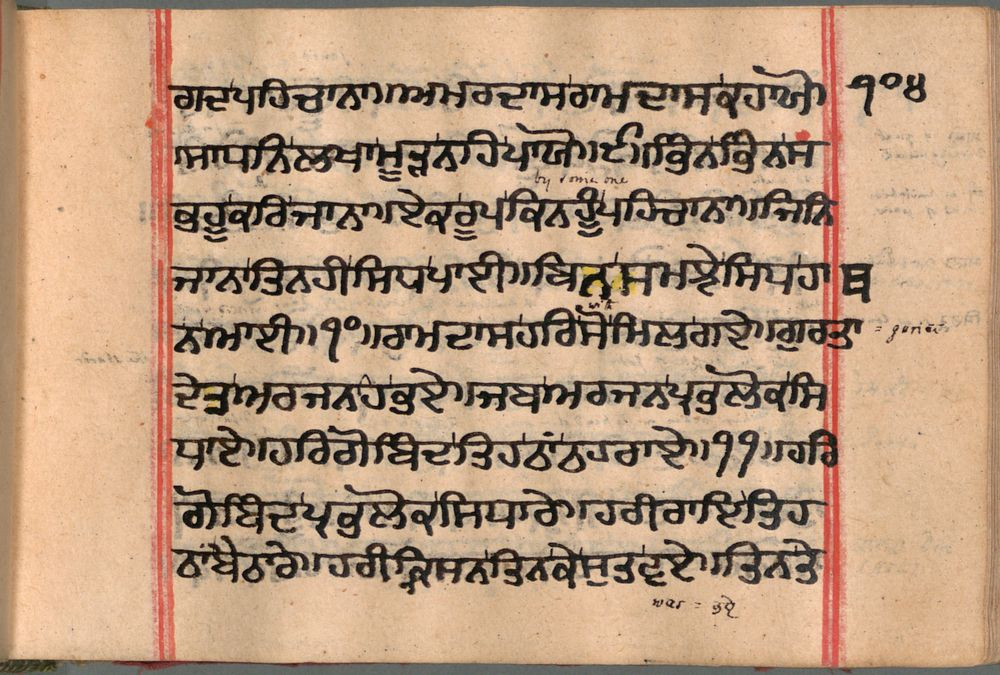 ਗਦਪਹਿਚਾਨਾ॥ਅਮਰਦਾਸਰਾਮਦਾਸਕਹਾਯੋ॥ ੧੦੪
ਸਾਧਨਿਲਖਾਮੂੜ੍ਹਨਹਿਪਾਯੋ॥੯॥ਭਿੰਨਭਿੰਨਸ
by some one
ਬਹੂੰਕਰਿਜਾਨਾ॥ਏਕਰੂਪਕਿਨਹੂੰਪਹਿਚਾਨਾ॥ਜਿਨਿ
ਜਾਨਾਤਿਨਹੀਸਿਧਪਾਈ॥ਬਿਨਸਮਝੇਸਿਧਹਾ
ਨਾਆਈ॥੧੦॥ਰਾਮਦਾਸਹਰਿਸੋਮਿਲਗਏ॥ਗੁਰਤਾ
ਦੇਤਅਰਜਨਹਿਭਏ॥ਜਬਅਰਜਨਪ੍ਰਭਲੋਕਸਿ
ਧਾਏ॥ਹਰਿਗੋਬਿੰਦਤਿਹਠਾਂਠਹਰਾਏ॥੧੧॥ਹਰਿ
ਗੋਬਿੰਦਪ੍ਰਭਲੋਕਸਿਧਾਰੇ॥ਹਰੀਰਾਇਤਿਹ
ਠਾਂਬੈਠਾਰੇ॥ਹਰੀਕ੍ਰਿਸਨਤਿਨਕੇਸੁਤਵਏ॥ਤਿਨਤੇ